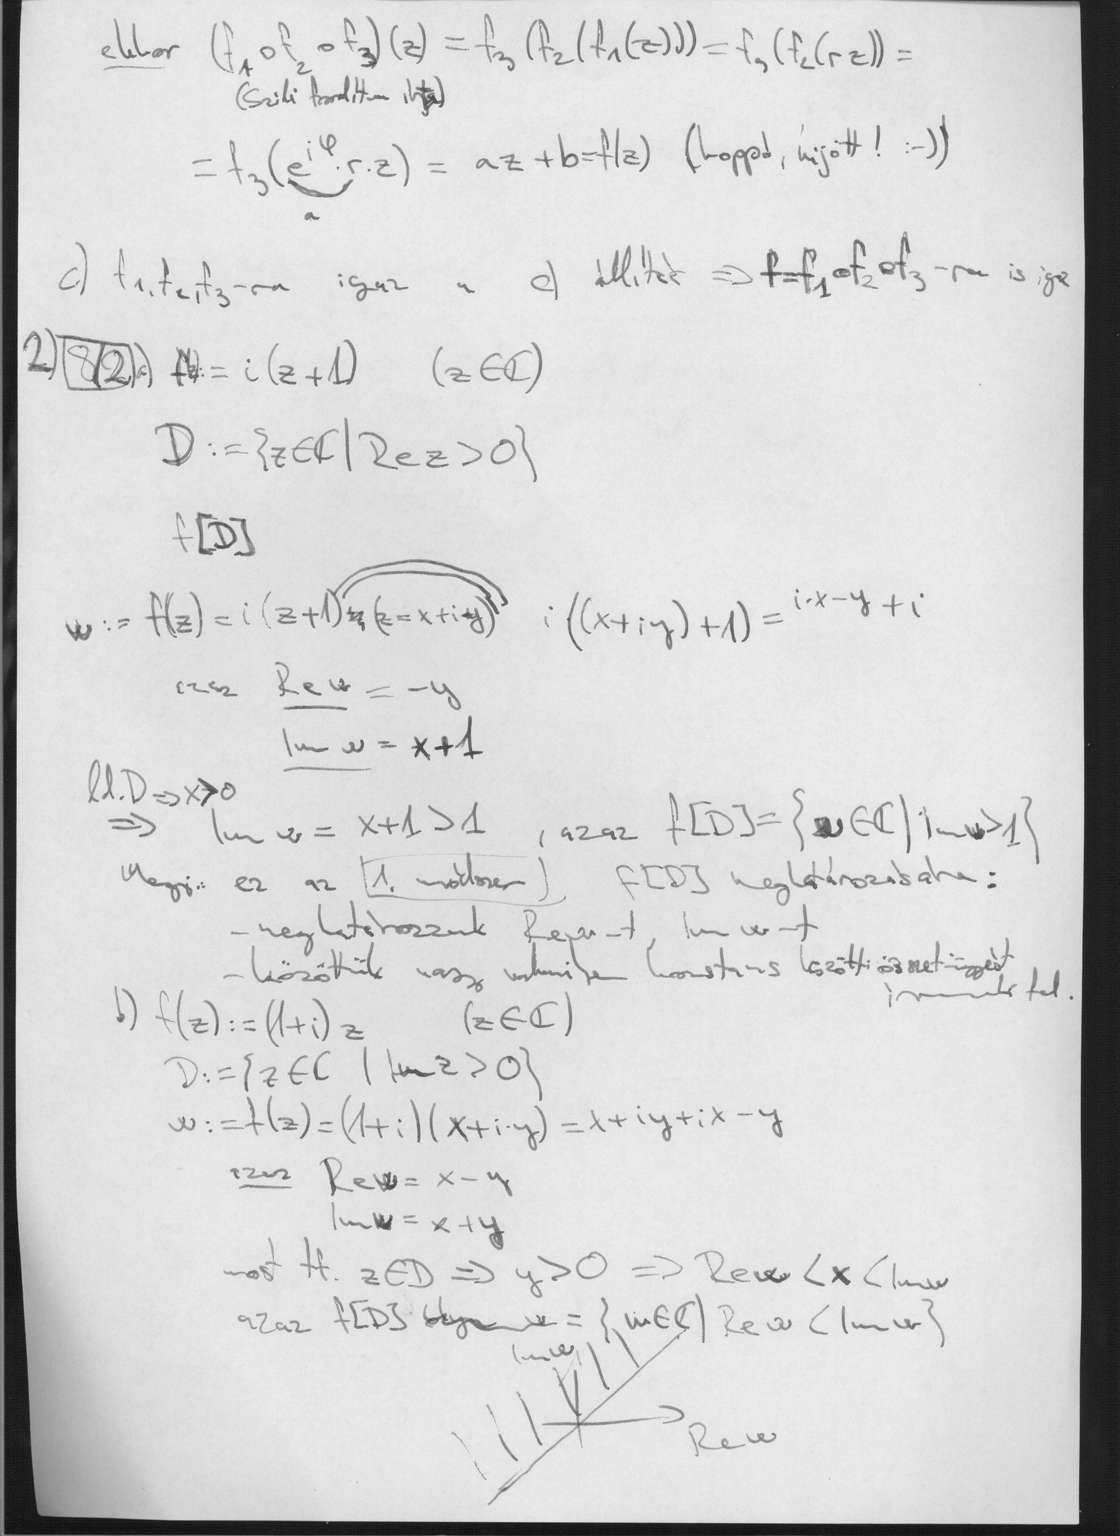 ekkor (f₁∘f₂∘f₃)(z) = f₃(f₂(f₁(z))) = f₃(f₂(rz)) =
(Szili fordítva írja)
= f₃(e^{iφ}·r·z) = az+b=f(z) (hoppá, kijött! :-))
a
c) f₁,f₂,f₃-ra igaz a c) állítás ⇒ f=f₁∘f₂∘f₃-ra is igaz
2) 8/2 a) f(z):= i(z+1) (z∈ℂ)
D:={z∈ℂ | Re z>0}
f[D]
w:= f(z)=i(z+1) = (z=x+iy) i((x+iy)+1)= i·x-y+i
azaz Re w = -y
Im w = x+1
ld. D ⇒ x>0
⇒ Im w = x+1>1, azaz f[D]={w∈ℂ | Im w>1}
Megj.: ez az 1. módszer f[D] meghatározására:
- meghatározzuk Re w-t, Im w-t
- közöttük vagy valamilyen konstans közötti összefüggést
írunk fel.
b) f(z):=(1+i)z (z∈ℂ)
D:={z∈ℂ | Im z>0}
w:=f(z)=(1+i)(x+i·y)=x+iy+ix-y
azaz Re w= x-y
Im w= x+y
most tf. z∈D ⇒ y>0 ⇒ Re w < x < Im w
azaz f[D] = {w∈ℂ | Re w < Im w}
Im w
Re w